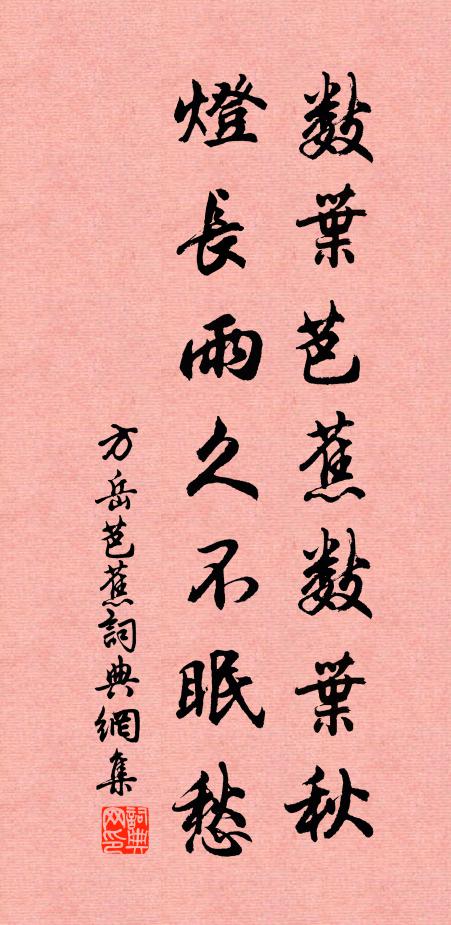 数葉芭蕉数葉秋
燈長雨久不眠愁
方岳芭蕉詞典網集
詞典網印